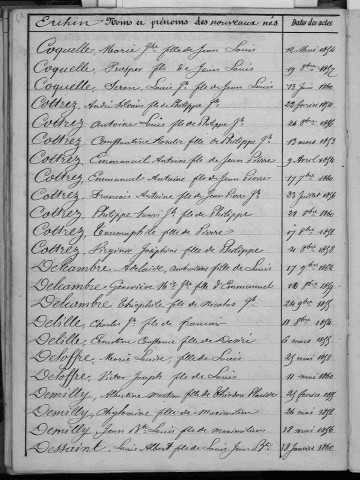 Erchin Noms et prénoms des nouveaux nés Dates des actes
Coquelle, Marie Jh fille de Jean Louis 12 Mai 1854
Coquelle, Prosper fils de Jean Louis 1857
Coquelle, Louis Jh fils de Jean Louis 13 Juin 1860
Cottrez, André Silvain fils de Philippe Jh 22 février 1854
Cottrez, Antoine Louis fils de Philippe Jh 1856
Cottrez, Constantine fille de Philippe Jh 13 mars 1853
Cottrez, Emmanuel Antoine fils de Jean Pierre 9 Avril 1854
Cottrez, Emmanuel Antoine, fils de Jean Pierre 17 7bre 1860
Cottrez, Francois Antoine fils de Jean Pierre Jh 23 Juillet 1856
Cottrez, Philippe Henri Jh fils de Philippe 1860
Cottrez, Triumphile fille de Pierre 17 8bre 1858
Cottrez, Virginie Joséphine fille de Philippe 1858
Delcambre, Adelaide, fille de Louis 17 9bre
Delcambre, Génévieve fille d'Emmanuel 18 8bre
Delcambre, Théophile fils de Nicolas Jh 24 9bre 1855
Delille, Charles Jh fils de francois 11 8bre 1854
Delille, fille de Désiré 6 mars 1855
Deloffre, Marie Louise, fille de Louis 25 mai 1858
Deloffre, Victor Joseph fils de Louis 11 mai 1860
Demilly, Albertine fille de Placide 25 février 1855
Demilly, Philomène fille de Maximilien 26 mai 1858
Demilly, Jean Bte Louis fils de maximilien 18 mai 1856
Dessaint, Louis Albert fils de Louis Jean Bte 19 Janvier 1860